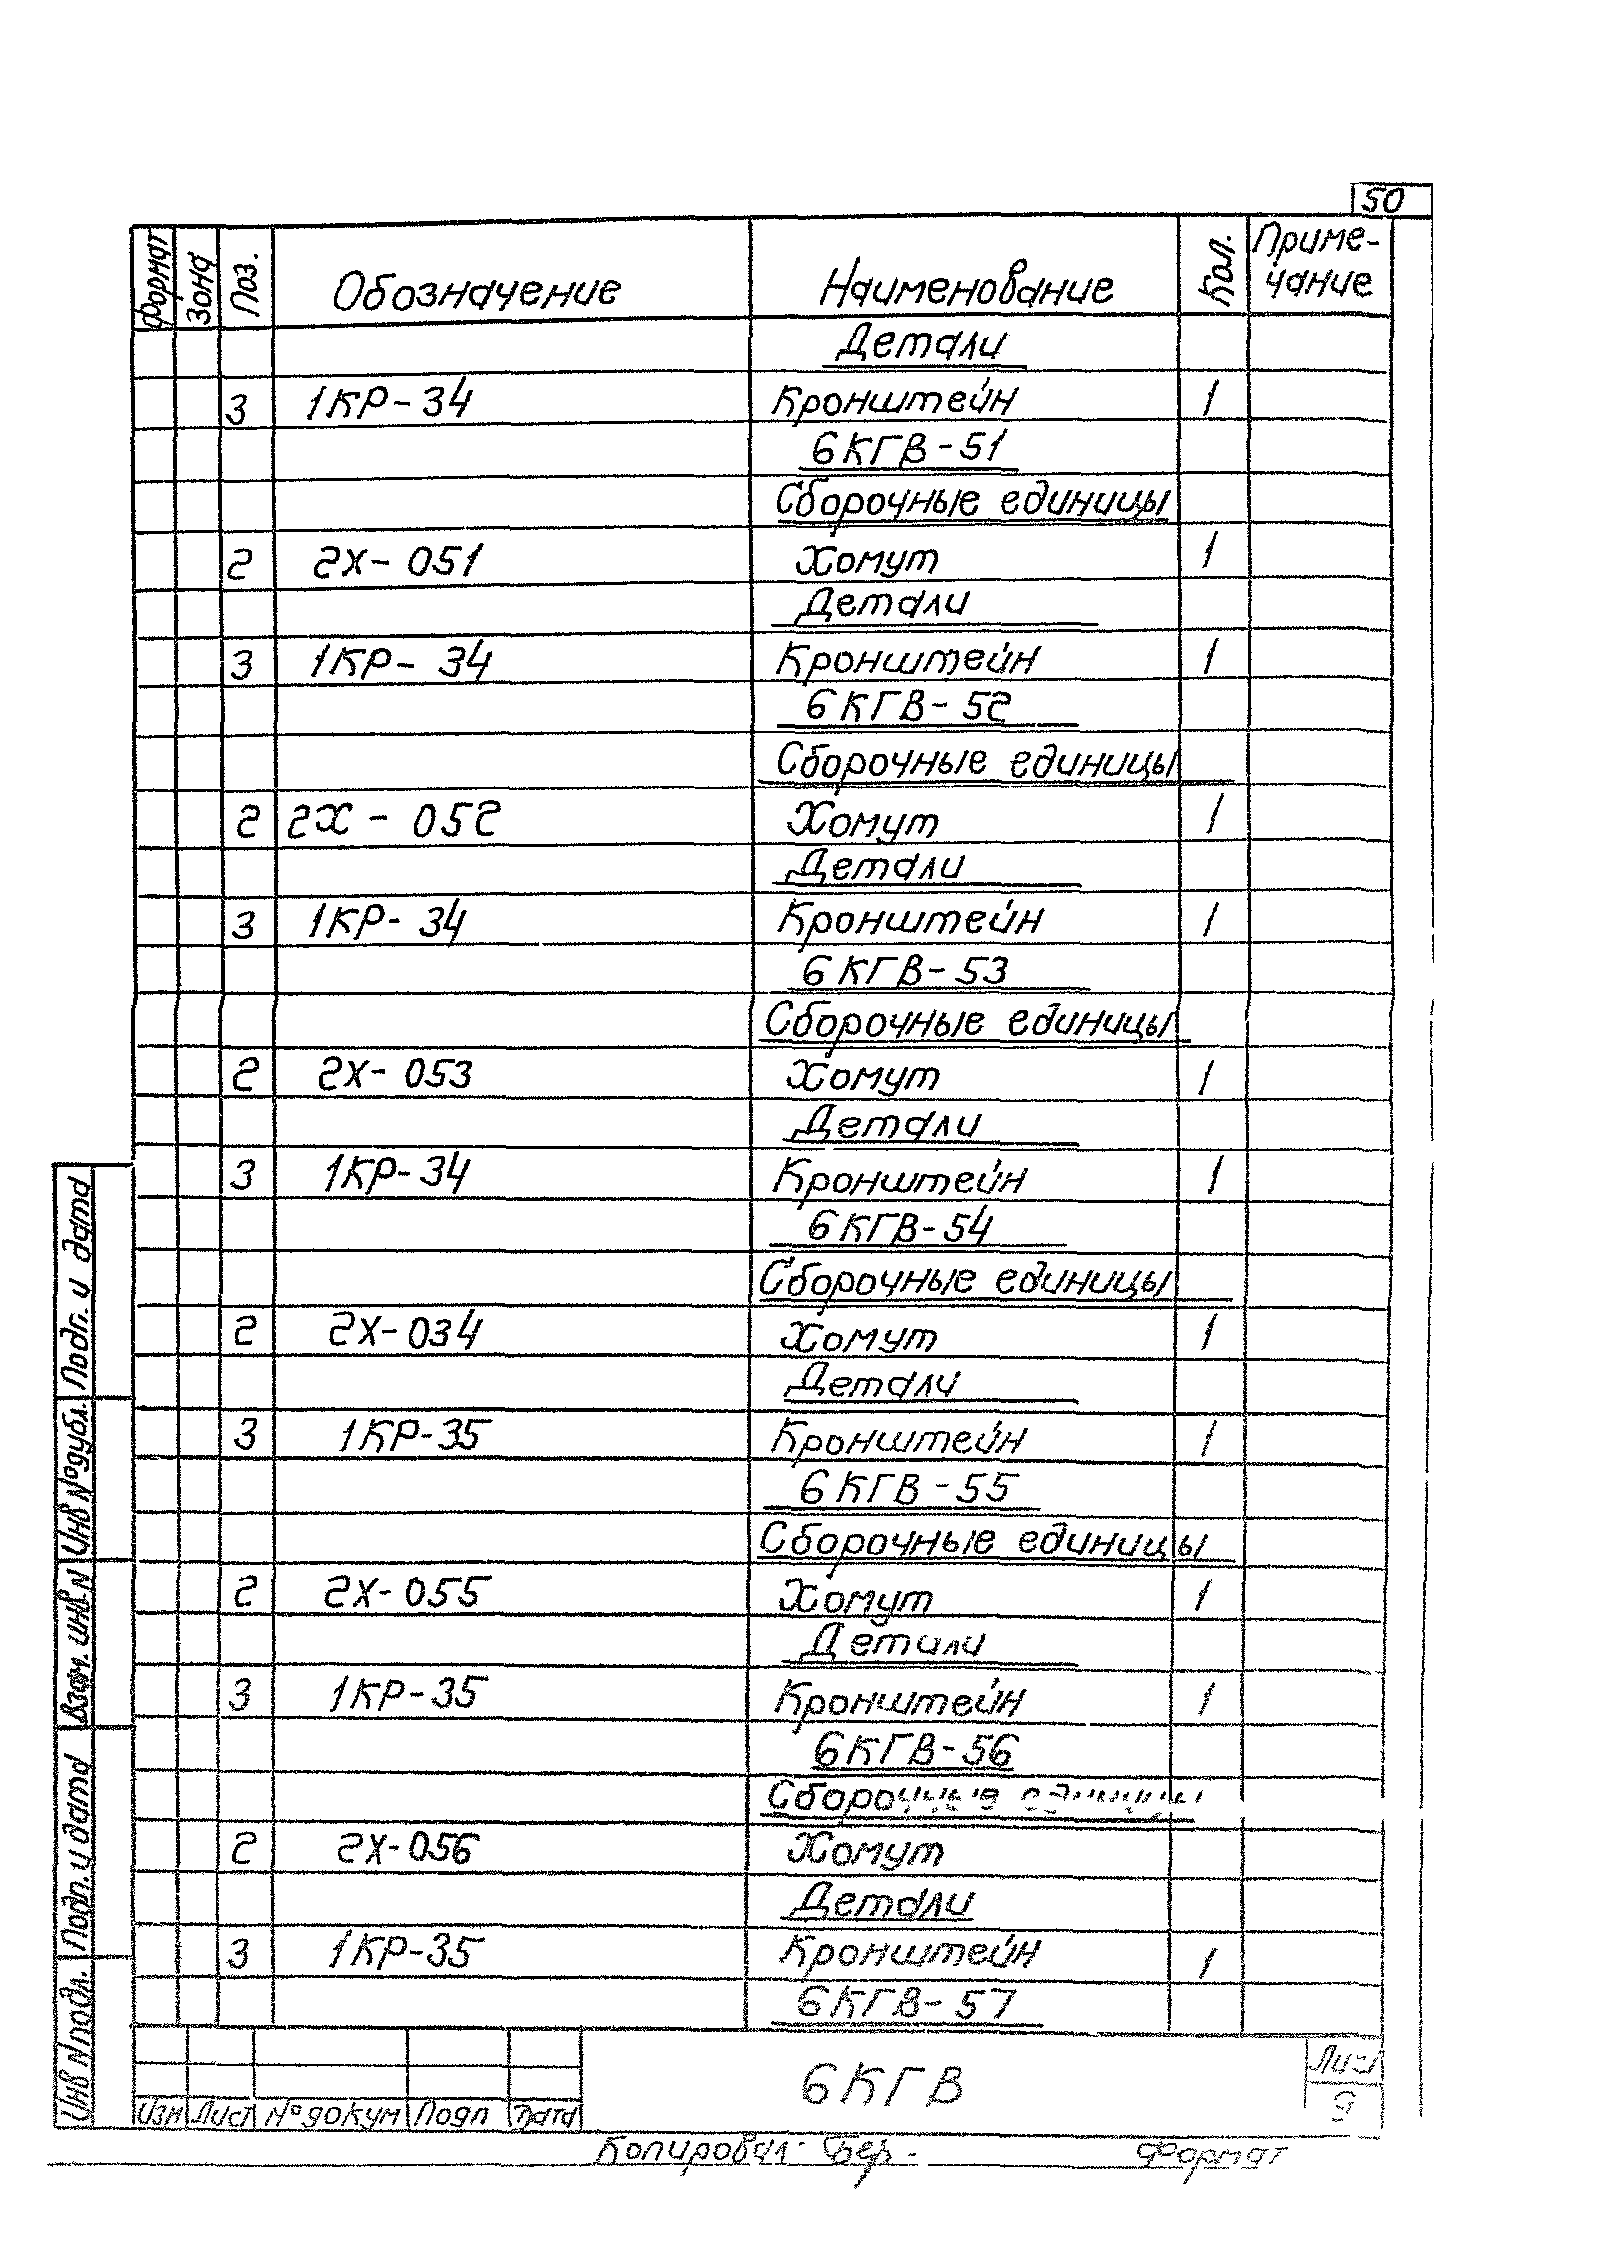 50
Формат Зона Поз. Обозначение Наименование Кол. Приме-
чание
Детали
3 1КР-34 Кронштейн 1
6КГВ-51
Сборочные единицы
2 2Х-051 Хомут 1
Детали
3 1КР-34 Кронштейн 1
6КГВ-52
Сборочные единицы
2 2Х-052 Хомут 1
Детали
3 1КР-34 Кронштейн 1
6КГВ-53
Сборочные единицы
2 2Х-053 Хомут 1
Детали
3 1КР-34 Кронштейн 1
6КГВ-54
Сборочные единицы
2 2Х-034 Хомут 1
Детали
3 1КР-35 Кронштейн 1
6КГВ-55
Сборочные единицы
2 2Х-055 Хомут 1
Детали
3 1КР-35 Кронштейн 1
6КГВ-56
Сборочные единицы
2 2Х-056 Хомут
Детали
3 1КР-35 Кронштейн 1
6КГВ-57
Подп. и дата
Инв №дубл.
Взам. инв N
Подп. и дата
Инв N подл.
Изм Лист №докум Подп Дата
6КГВ
Лист
9
Копировал: Вер - Формат